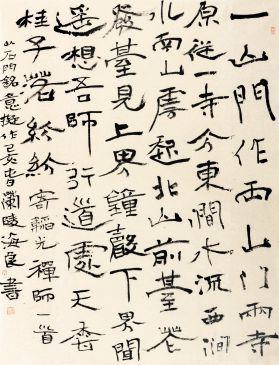 一山門作两山门兩寺
原從一寺分東澗水流西澗
水南山雲起北山前臺花
發臺見上界鐘聲下界聞
遥想吾師行道處天香
桂子落紛紛 寄韜光禪師一首
以石門銘意擬作己亥春蘭陵海良書